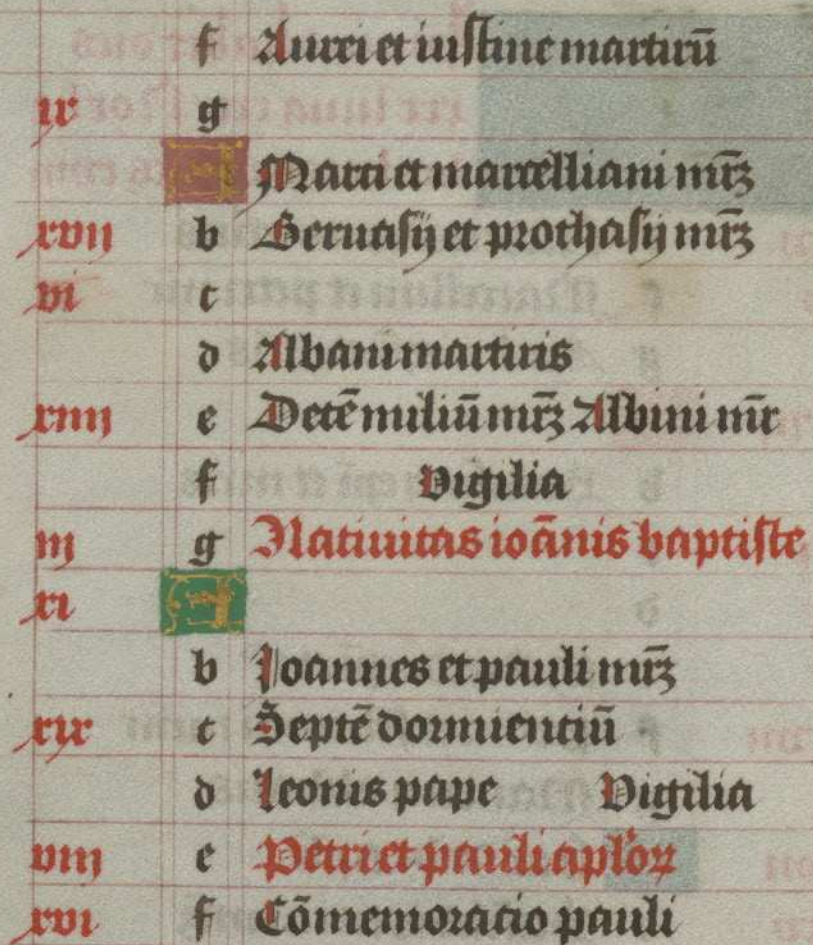 f Aurei et iustine martirū
ix g
A Marci et marcelliani mr̄ꝫ
xvii b Geruasij et prothasij mr̄ꝫ
vi c
d Albani martiris
xiiii e Decē miliū mr̄ꝫ Albini mr̄
f Vigilia
iij g Natiuitas ioānis baptiste
xi A
b Joannes et pauli mr̄ꝫ
xix c Septē dormientiū
d Leonis pape Vigilia
viij e Petri et pauli aplo̓ꝝ
xvi f Cōmemoratio pauli